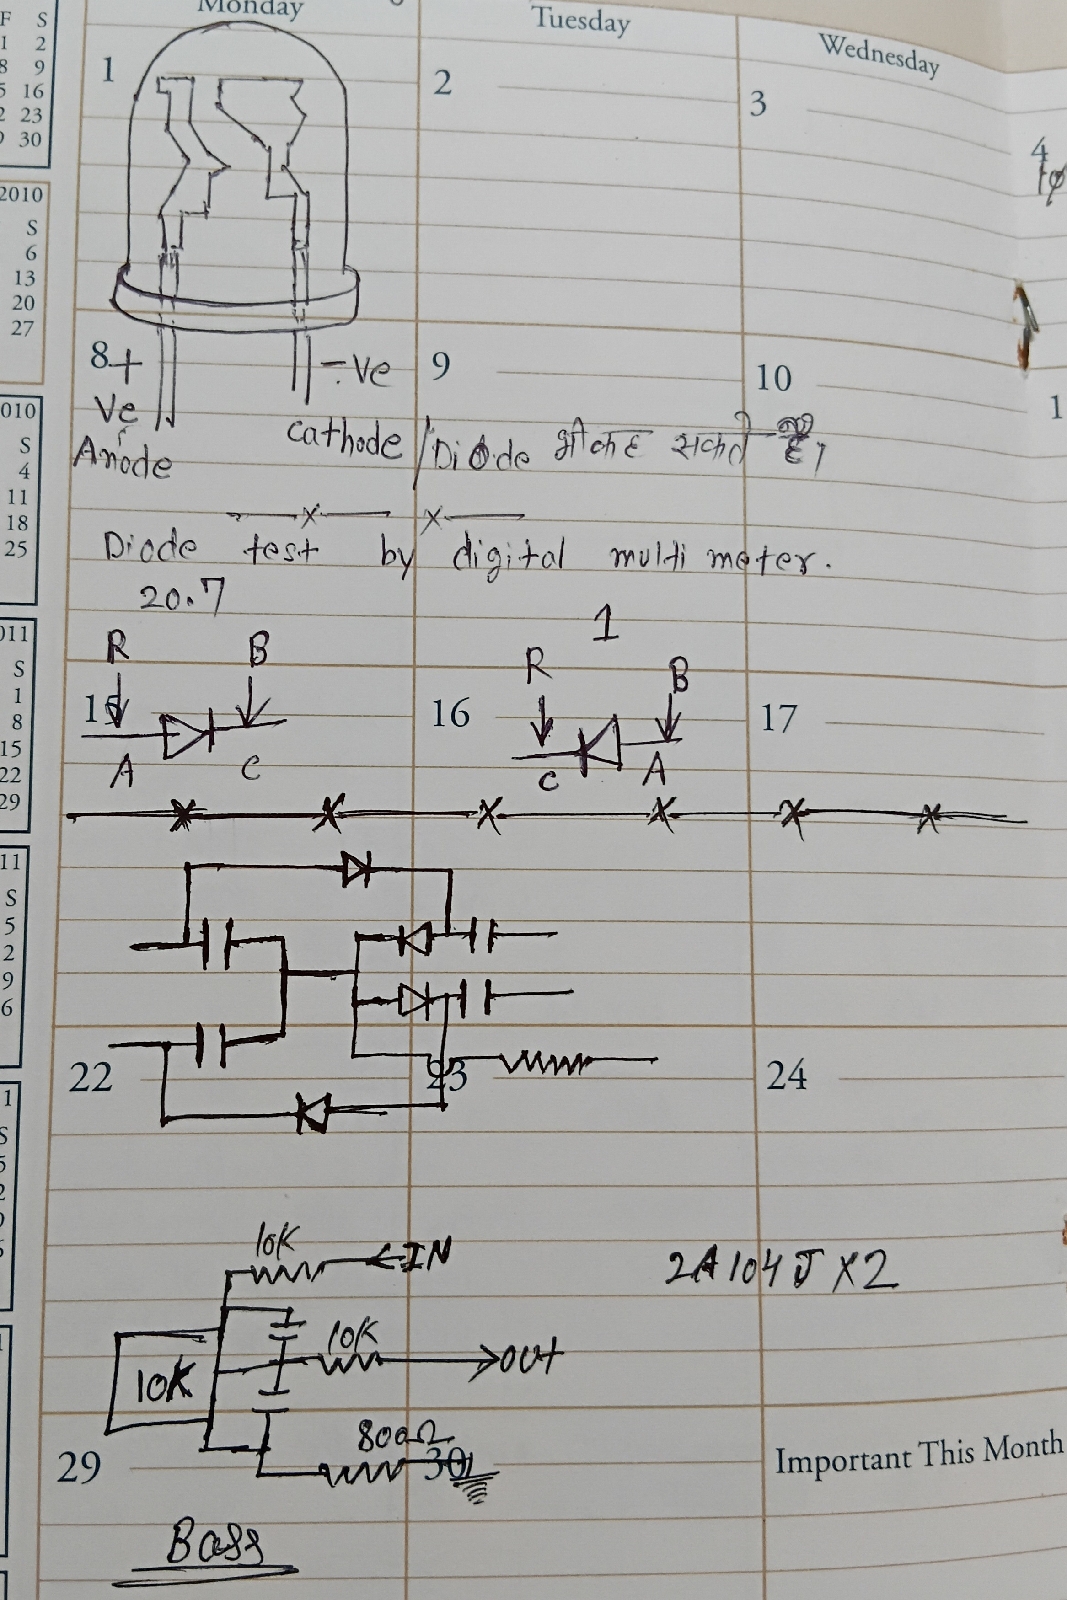 Monday
Tuesday
Wednesday
F S
1 2
8 9
5 16
2 23
30
1
2
3
4
2010
S
6
13
20
27
8
+
Ve
-Ve
9
10
1
Anode
Cathode / Diode भी कह सकते है।
010
S
4
11
18
25
Diode test by digital multi meter.
20.7
1
R B
R B
011
S
1
8
15
22
29
15
16
17
A C
C A
11
S
5
2
9
6
22
23
24
1
S
5
2
10K
IN
2A104J X2
10K
10K
OUT
800Ω
29
30
Important This Month
Bass